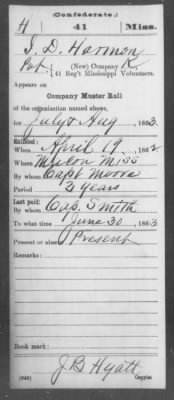 (Confederate.)
H 41 Miss.
J. D. Harmon
Pvt, (New) Company K,
41 Reg't Mississippi Volunteers.
Appears on
Company Muster Roll
of the organization named above,
for July & Aug, 1863.
Enlisted:
When April 19, 1862
Where Miss
By whom Capt Moore
Period 2 years
Last paid:
By whom Cap. Smith
To what time June 30, 1863
Present or absent Present
Remarks:
Book mark:
J B Hyatt
(642) Copyist.